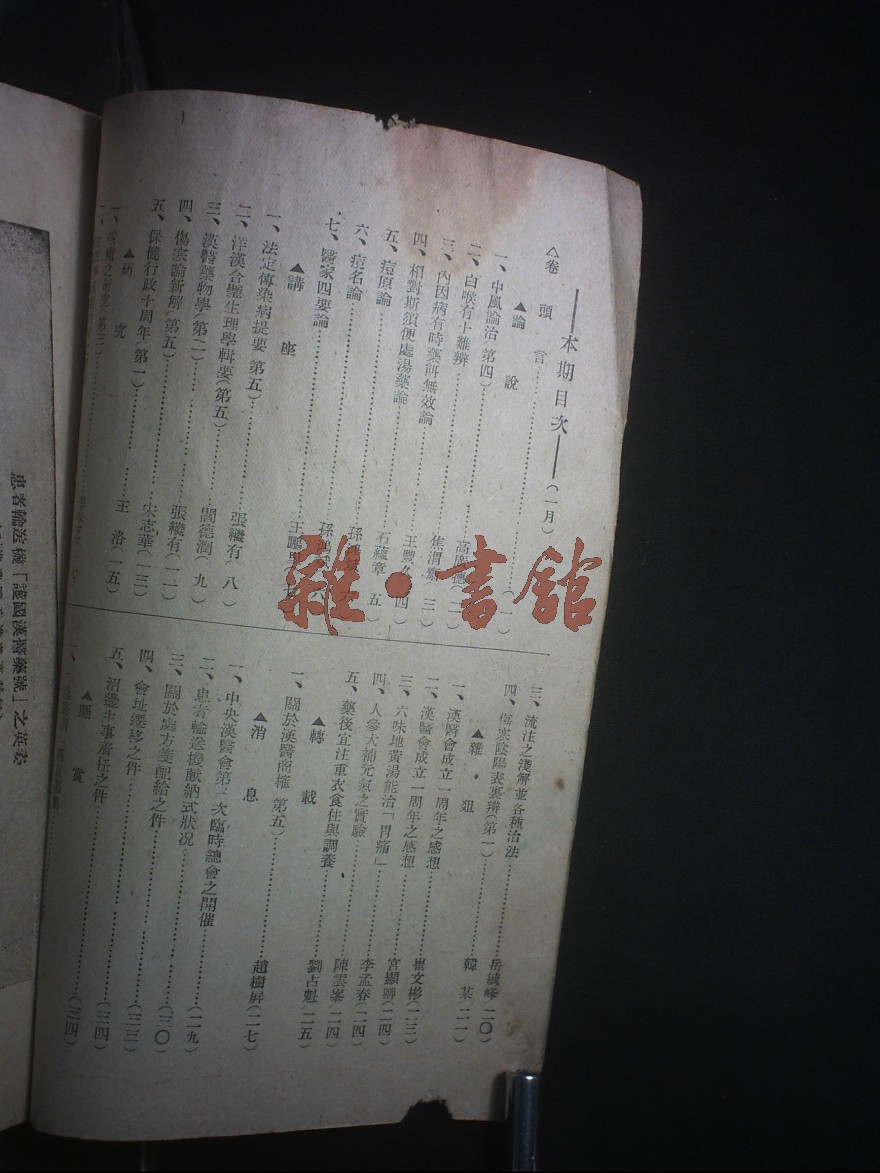 本期目次
(一月)
△卷頭言……(一)
▲論說
一、中風論治 第四)……高
二、白喉有十難辨……焦渭(三)
三、內因病有時藥餌無效論……王豐久(四)
四、相對斯須便處湯藥論
五、痘原論……石蘊章 五)
六、痘名論……孫鴻
七、醫家四要論……孫鴻
▲講座
一、法定傳染病提要 第五)……張繼有(八)
二、洋漢合璧生理學輯要(第五)……閻德潤(九)
三、漢醫藥物學(第二)……張繼有(一二)
四、傷寒論新解(第五)……宋志華(一三)
五、保健行政十周年(第一)……王洛(一五)
▲研究
之研究(第三)
三、流注之淺解並各種治法……岳毓峰(二〇)
四、傷寒陰陽表裏辨(第一)……韓某(二一)
▲雜俎
一、漢醫會成立一周年之感想……崔文彬(二三)
二、漢醫會成立一周年之感想……宮顯卿(二四)
三、六味地黃湯能治「胃痛」……李孟春(二四)
四、人參大補元氣之實驗……陳雲峯(二四)
五、藥後宜注重衣食住與調養……劉占魁(二五)
▲轉載
一、關於漢醫商榷 第五)……趙樹屏(二七)
▲消息
一、中央漢醫會第二次臨時總會之開催……(二九)
二、患者輸送機献納式狀况……(三〇)
三、關於處方箋配給之件……(三三)
四、會址遷移之件……(三四)
五、沼邊主事着任之件……(三四)
▲懸賞
患者輸送機「護國漢醫藥號」之英姿
雜·書館